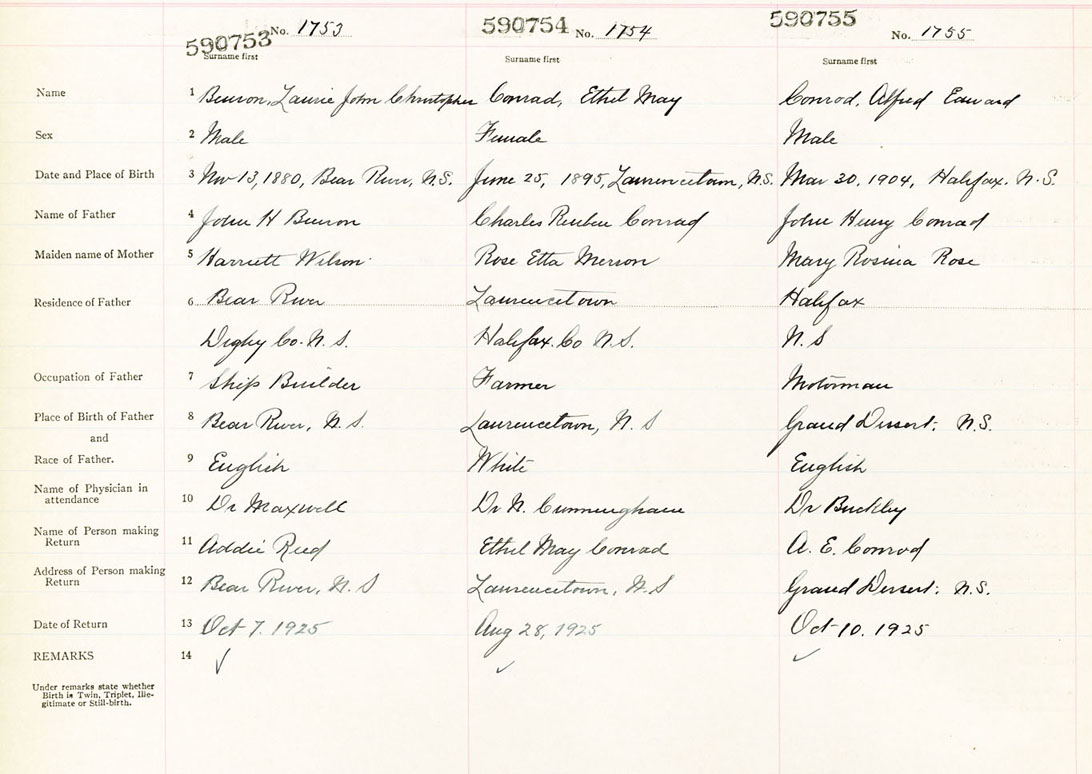 590753 No. 1753 590754 No. 1754 590755 No. 1755
Surname first Surname first Surname first
Name 1 Benson, Laurie John Christopher Conrad, Ethel May Conrod, Alfred Edward
Sex 2 Male Female Male
Date and Place of Birth 3 Nov 13, 1880, Bear River, N.S. June 25, 1895, Lawrencetown, N.S. Mar 30, 1904, Halifax. N.S.
Name of Father 4 John H Benson Charles Reuben Conrad John Henry Conrad
Maiden name of Mother 5 Harriett Wilson Rose Etta Merson Mary Rosina Rose
Residence of Father 6 Bear River Lawrencetown Halifax
Digby Co. N.S. Halifax. Co N.S. N.S
Occupation of Father 7 Ship Builder Farmer Motorman
Place of Birth of Father 8 Bear River, N.S. Lawrencetown, N.S Grand Dessert. N.S.
and
Race of Father. 9 English White English
Name of Physician in
attendance 10 Dr Maxwell Dr N. Cunningham Dr Buckley
Name of Person making
Return 11 Addie Reed Ethel May Conrad A. E. Conrod
Address of Person making
Return 12 Bear River, N.S Lawrencetown, N.S Grand Dessert. N.S.
Date of Return 13 Oct 7. 1925 Aug 28, 1925 Oct 10. 1925
REMARKS 14 ✓ ✓ ✓
Under remarks state whether
Birth is Twin, Triplet, Ille-
gitimate or Still-birth.